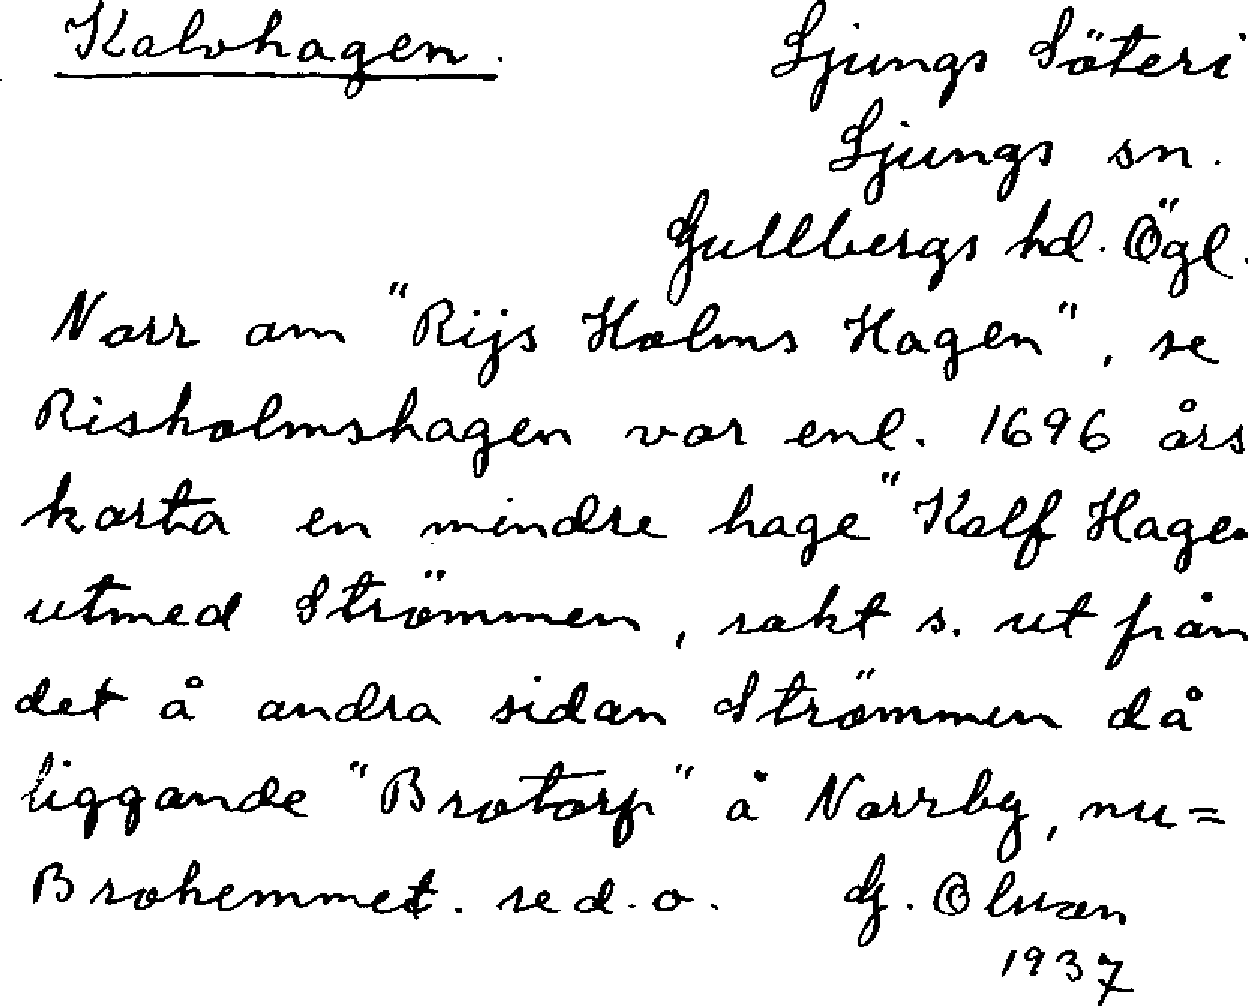 Kalvhagen.
Ljungs Säteri
Ljungs sn.
Gullbergs hd. Ögl.
Norr om "Rijs Holms Hagen", se
Risholmshagen var enl. 1696 års
karta en mindre hage "Kalf Hagen
utmed Strömmen, rakt s. ut från
det å andra sidan Strömmen då
liggande "Brotorp" å Norrby, nu=
Brohemmet. se d. o. G.
1937